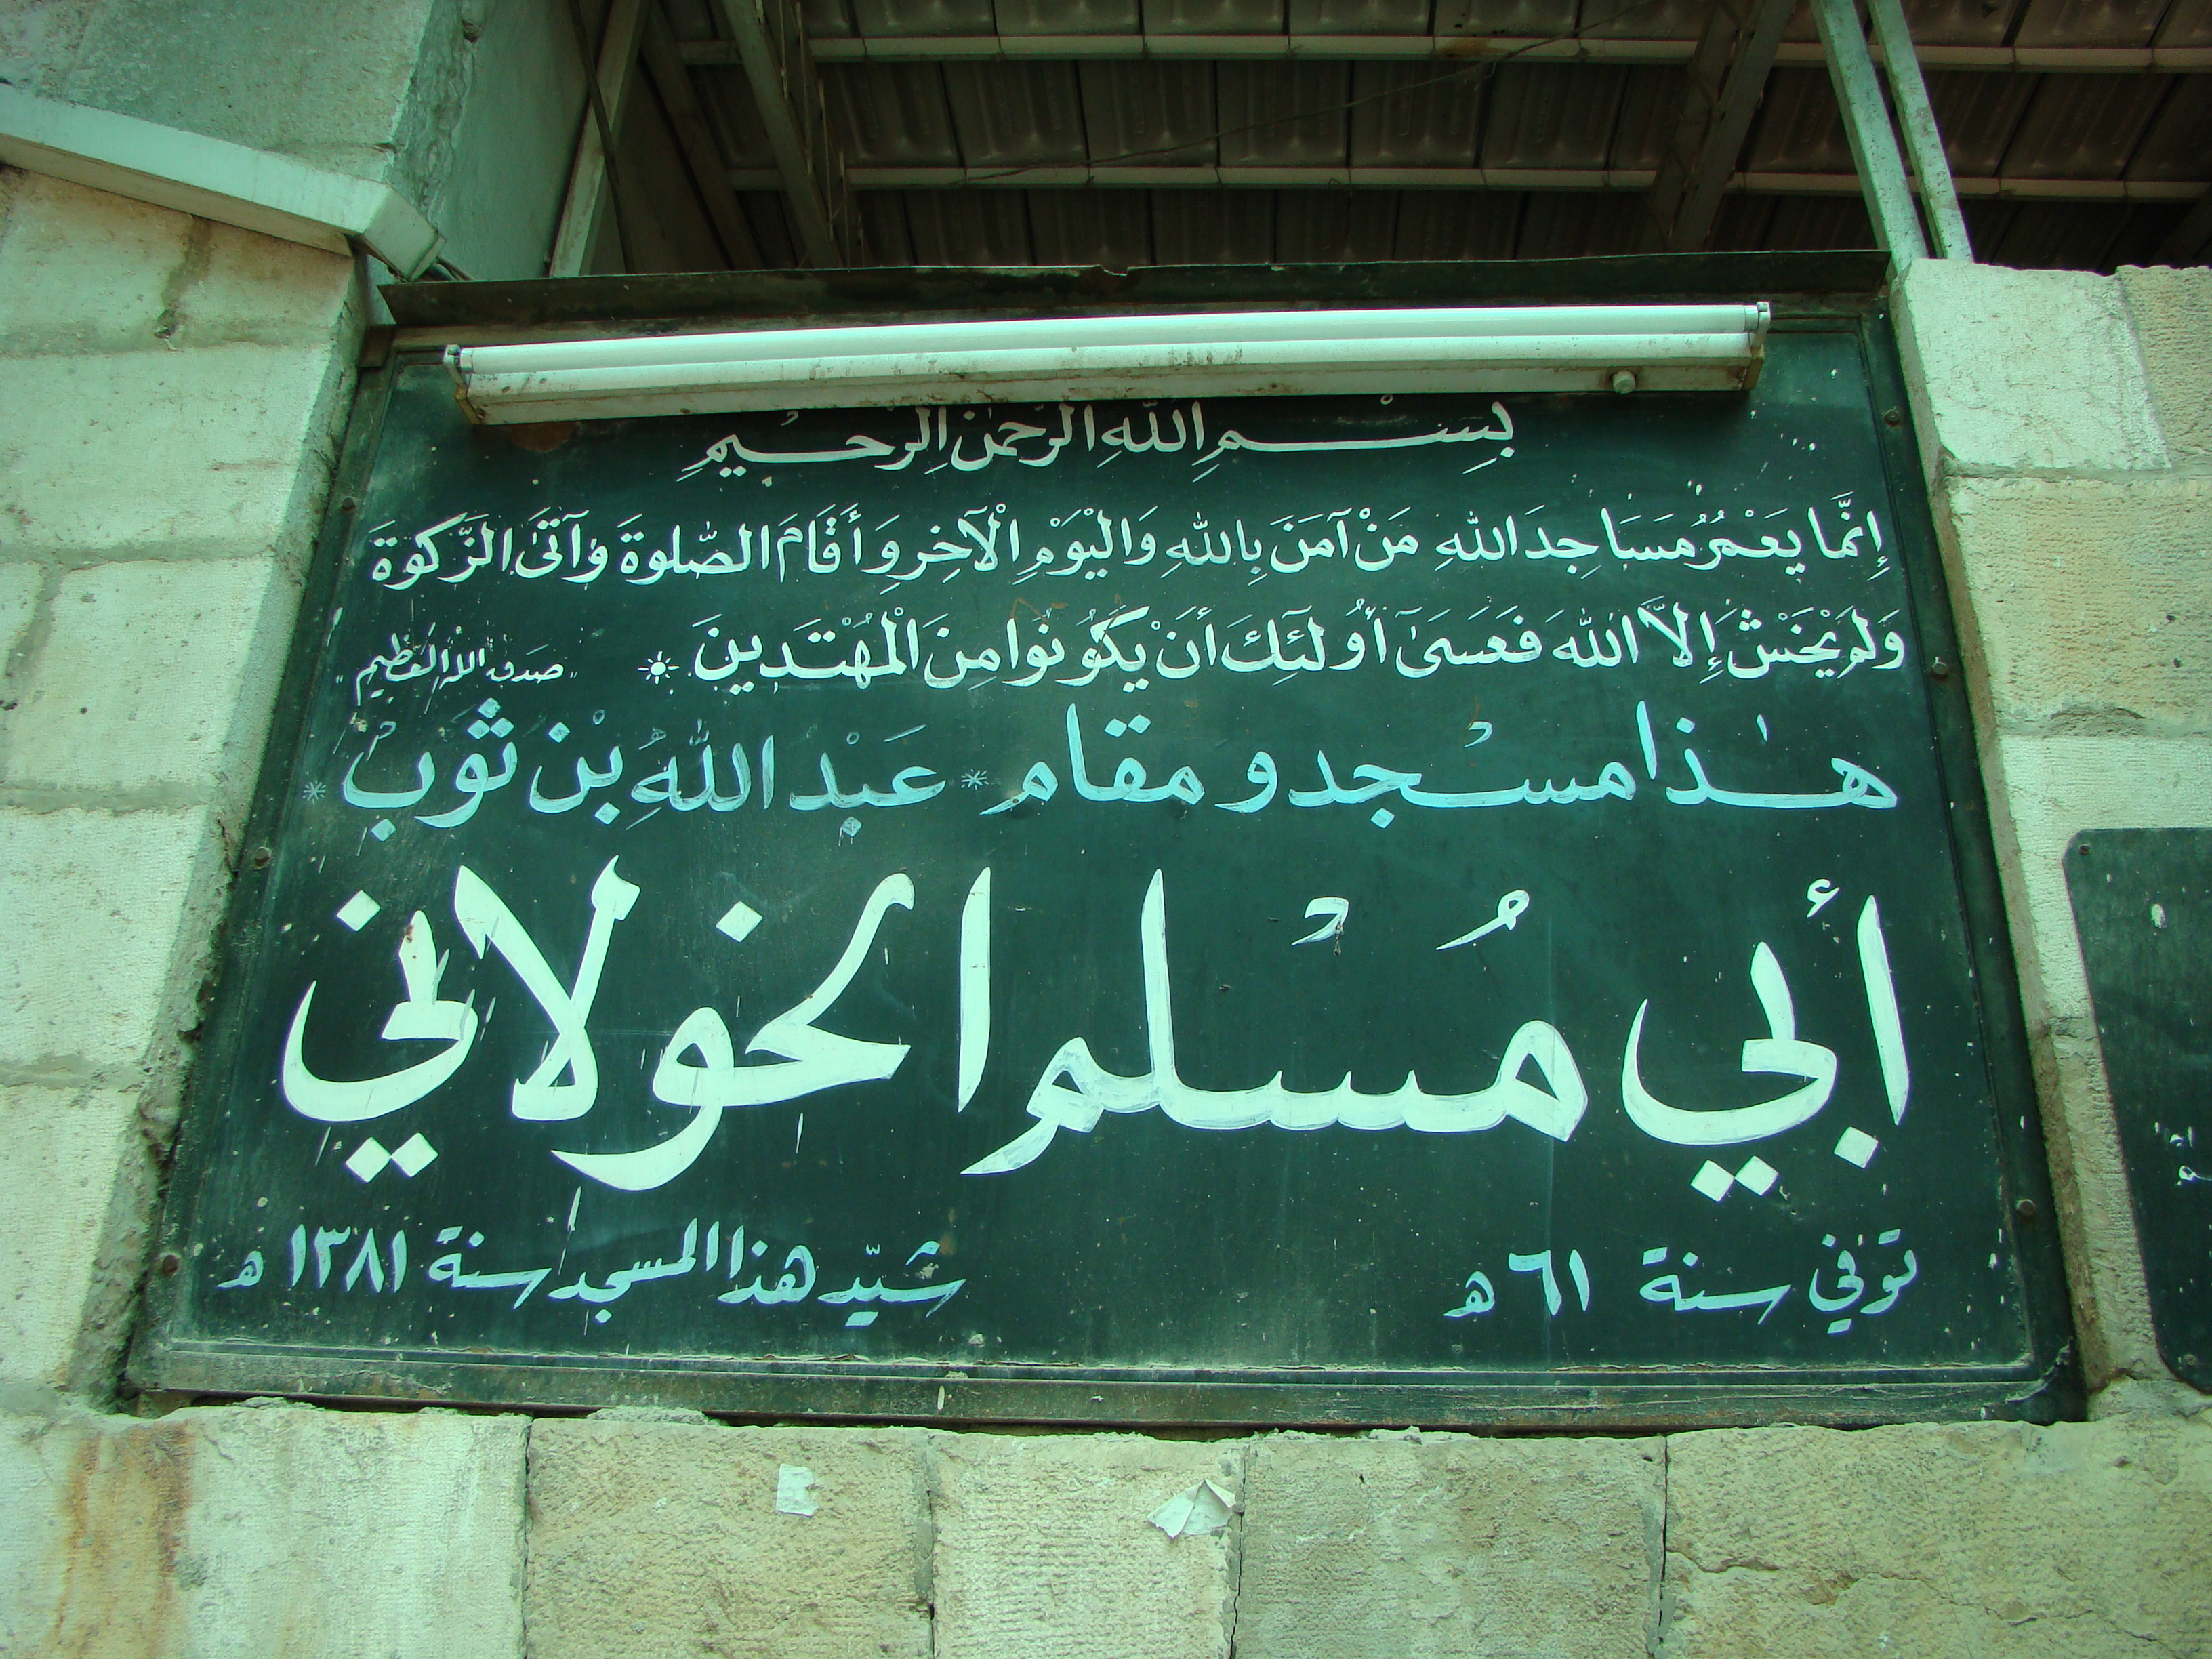 بِسْمِ اللهِ الرَّحْمٰنِ الرَّحِيْمِ
إِنَّمَا يَعْمُرُ مَسَاجِدَ اللهِ مَنْ آمَنَ بِاللهِ وَالْيَوْمِ الْآخِرِ وَأَقَامَ الصَّلوةَ وَآتَىٰ الزَّكٰوةَ
وَلَمْ يَخْشَ إِلاَّ اللهَ فَعَسَىٰ أُولَٰئِكَ أَنْ يَكُونُوا مِنَ الْمُهْتَدِينَ ☀ "صدق الله العظيم"
هٰذا مسْجد و مقام * عَبْد اللهِ بْن ثَوَبْ *
أبي مُسْلم الخولاني
توفي سنة ٦١ هـ شيّد هذا المسجد سنة ١٣٨١ هـ